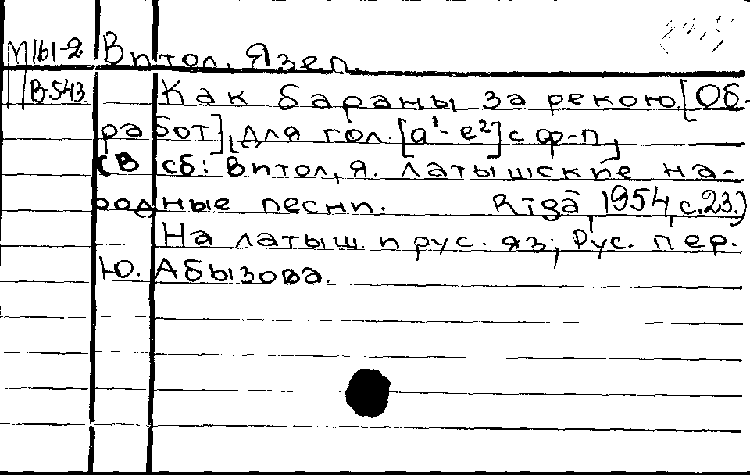 М 161-2 Витол, Язеп.
В-543 Как бараны за рекою. [Об-
работ], для гол. [a¹-e²] с ф-п.,
(В сб: Витол, Я. Латышские на-
родные песни. Rīgā, 1954, с.23.)
На латыш. и рус. яз; Рус. пер.
Ю. Абызова.